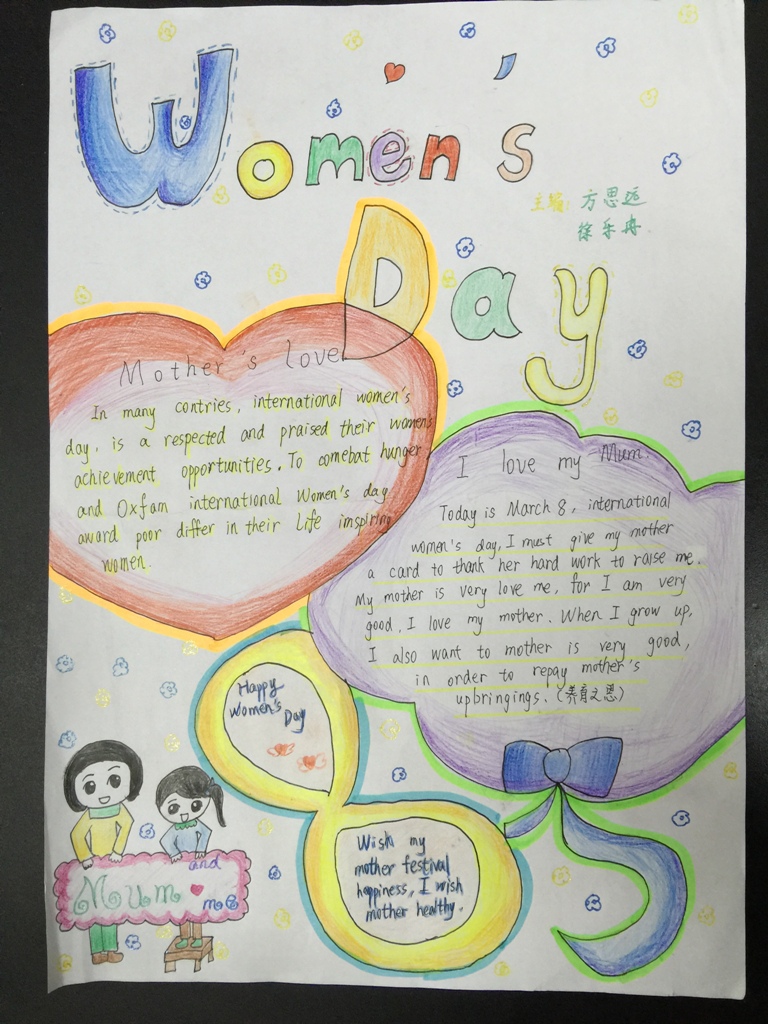 Women's
Day
主编: 方思远
徐乐冉
Mother's love
In many contries, international women's
day, is a respected and praised their women's
achievement opportunities. To comebat hunger
and Oxfam international Women's day
award poor differ in their Life inspiring
women.
I love my Mum.
Today is March 8, international
women's day, I must give my mother
a card to thank her hard work to raise me.
My mother is very love me, for I am very
good, I love my mother. When I grow up,
I also want to mother is very good,
in order to repay mother's
upbringings. (养育之恩)
Happy
Women's
Day
Wish my
mother festival
happiness, I wish
mother healthy.
and
Mum me